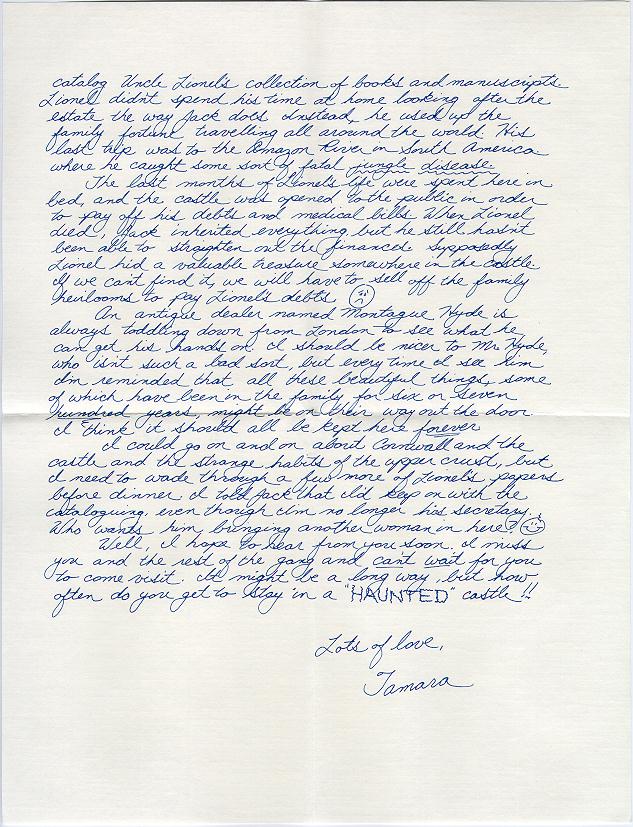 catalog Uncle Lionel's collection of books and manuscripts.
Lionel didn't spend his time at home looking after the
estate the way Jack does. Instead, he used up the
family fortune travelling all around the world. His
last trip was to the Amazon River in South America
where he caught some sort of fatal jungle disease.
The last months of Lionel's life were spent here in
bed, and the castle was opened to the public in order
to pay off his debts and medical bills. When Lionel
died, Jack inherited everything, but he still hasn't
been able to straighten out the finances. Supposedly
Lionel hid a valuable treasure somewhere in the castle.
If we can't find it, we will have to sell off the family
heirlooms to pay Lionel's debts.
An antique dealer named Montague Hyde is
always toddling down from London to see what he
can get his hands on. I should be nicer to Mr. Hyde,
who isn't such a bad sort, but every time I see him
I'm reminded that all these beautiful things, some
of which have been in the family for six or seven
hundred years, might be on their way out the door.
I think it should all be kept here forever.
I could go on and on about Cornwall and the
castle and the strange habits of the upper crust, but
I need to wade through a few more of Lionel's papers
before dinner. I told Jack that I'd keep on with the
cataloguing even though I'm no longer his secretary.
Who wants him bringing another woman in here?
Well, I hope to hear from you soon. I miss
you and the rest of the gang and can't wait for you
to come visit. It might be a long way, but how
often do you get to stay in a "HAUNTED" castle!!
Lots of love,
Tamara